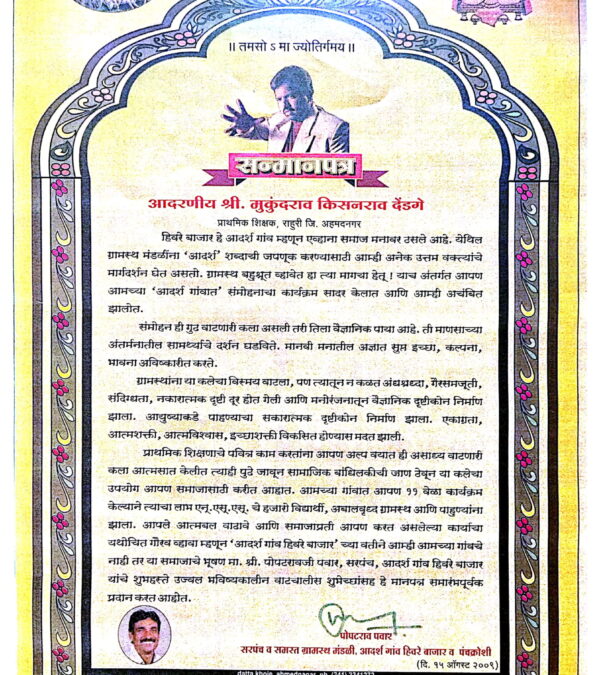 ॥ तमसो ऽ मा ज्योतिर्गमय ॥
सन्मानपत्र
आदरणीय श्री. मुकुंदराव किसनराव देंडगे
प्राथमिक शिक्षक, राहुरी जि. अहमदनगर
हिवरे बाजार हे आदर्श गांव म्हणून एव्हाना समाज मनावर ठसले आहे. येथिल
ग्रामस्थ मंडळींना 'आदर्श' शब्दाची जपणूक करण्यासाठी आम्ही अनेक उत्तम वक्त्यांचे
मार्गदर्शन घेत असतो. ग्रामस्थ बहुश्रूत व्हावेत हा त्या मागचा हेतू ! याच अंतर्गत आपण
आमच्या 'आदर्श गांवात' संमोहनाचा कार्यक्रम सादर केलात आणि आम्ही अचंबित
झालोत.
संमोहन ही गुढ वाटणारी कला असली तरी तिला वैज्ञानिक पाया आहे. ती माणसाच्या
अंतर्मनातील सामर्थ्याचे दर्शन घडविते. मानवी मनातील अज्ञात सुप्त इच्छा, कल्पना,
भावना अविष्कारीत करते.
ग्रामस्थांना या कलेचा विस्मय वाटला, पण त्यातून न कळत अंधश्रध्दा, गैरसमजूती,
संदिग्धता, नकारात्मक दृष्टी दूर होत गेली आणि मनोरंजनातून वैज्ञानिक दृष्टीकोन निर्माण
झाला. आयुष्याकडे पाहण्याचा सकारात्मक दृष्टीकोन निर्माण झाला. एकाग्रता,
आत्मशक्ती, आत्मविश्वास, इच्छाशक्ती विकसित होण्यास मदत झाली.
प्राथमिक शिक्षणाचे पवित्र काम करतांना आपण अल्प वयात ही असाध्य वाटणारी
कला आत्मसात केलीत त्याही पुढे जावून सामाजिक बांधिलकीची जाण ठेवून या कलेचा
उपयोग आपण समाजासाठी करीत आहात. आमच्या गांवात आपण ११ वेळा कार्यक्रम
केल्याने त्याचा लाभ एन्.एस्.एस्. चे हजारी विद्यार्थी, अबालवृध्द ग्रामस्थ आणि पाहुण्यांना
झाला. आपले आत्मबल वाढावे आणि समाजाप्रती आपण करत असलेल्या कार्याचा
यथोचित गौरव व्हावा म्हणून 'आदर्श गांव हिवरे बाजार' च्या वतीने आम्ही आमच्या गांवचे
नाही तर या समाजाचे भूषण मा. श्री. पोपटरावजी पवार, सरपंच, आदर्श गांव हिवरे बाजार
यांचे शुभहस्ते उज्वल भविष्यकालीन वाटचालीस शुभेच्छांसह हे मानपत्र समारंभपूर्वक
प्रदान करत आहोत.
पोपटराव पवार
सरपंच व समस्त ग्रामस्थ मंडळी, आदर्श गांव हिवरे बाजार व पंचक्रोशी
(दि. १५ ऑगस्ट २००९)